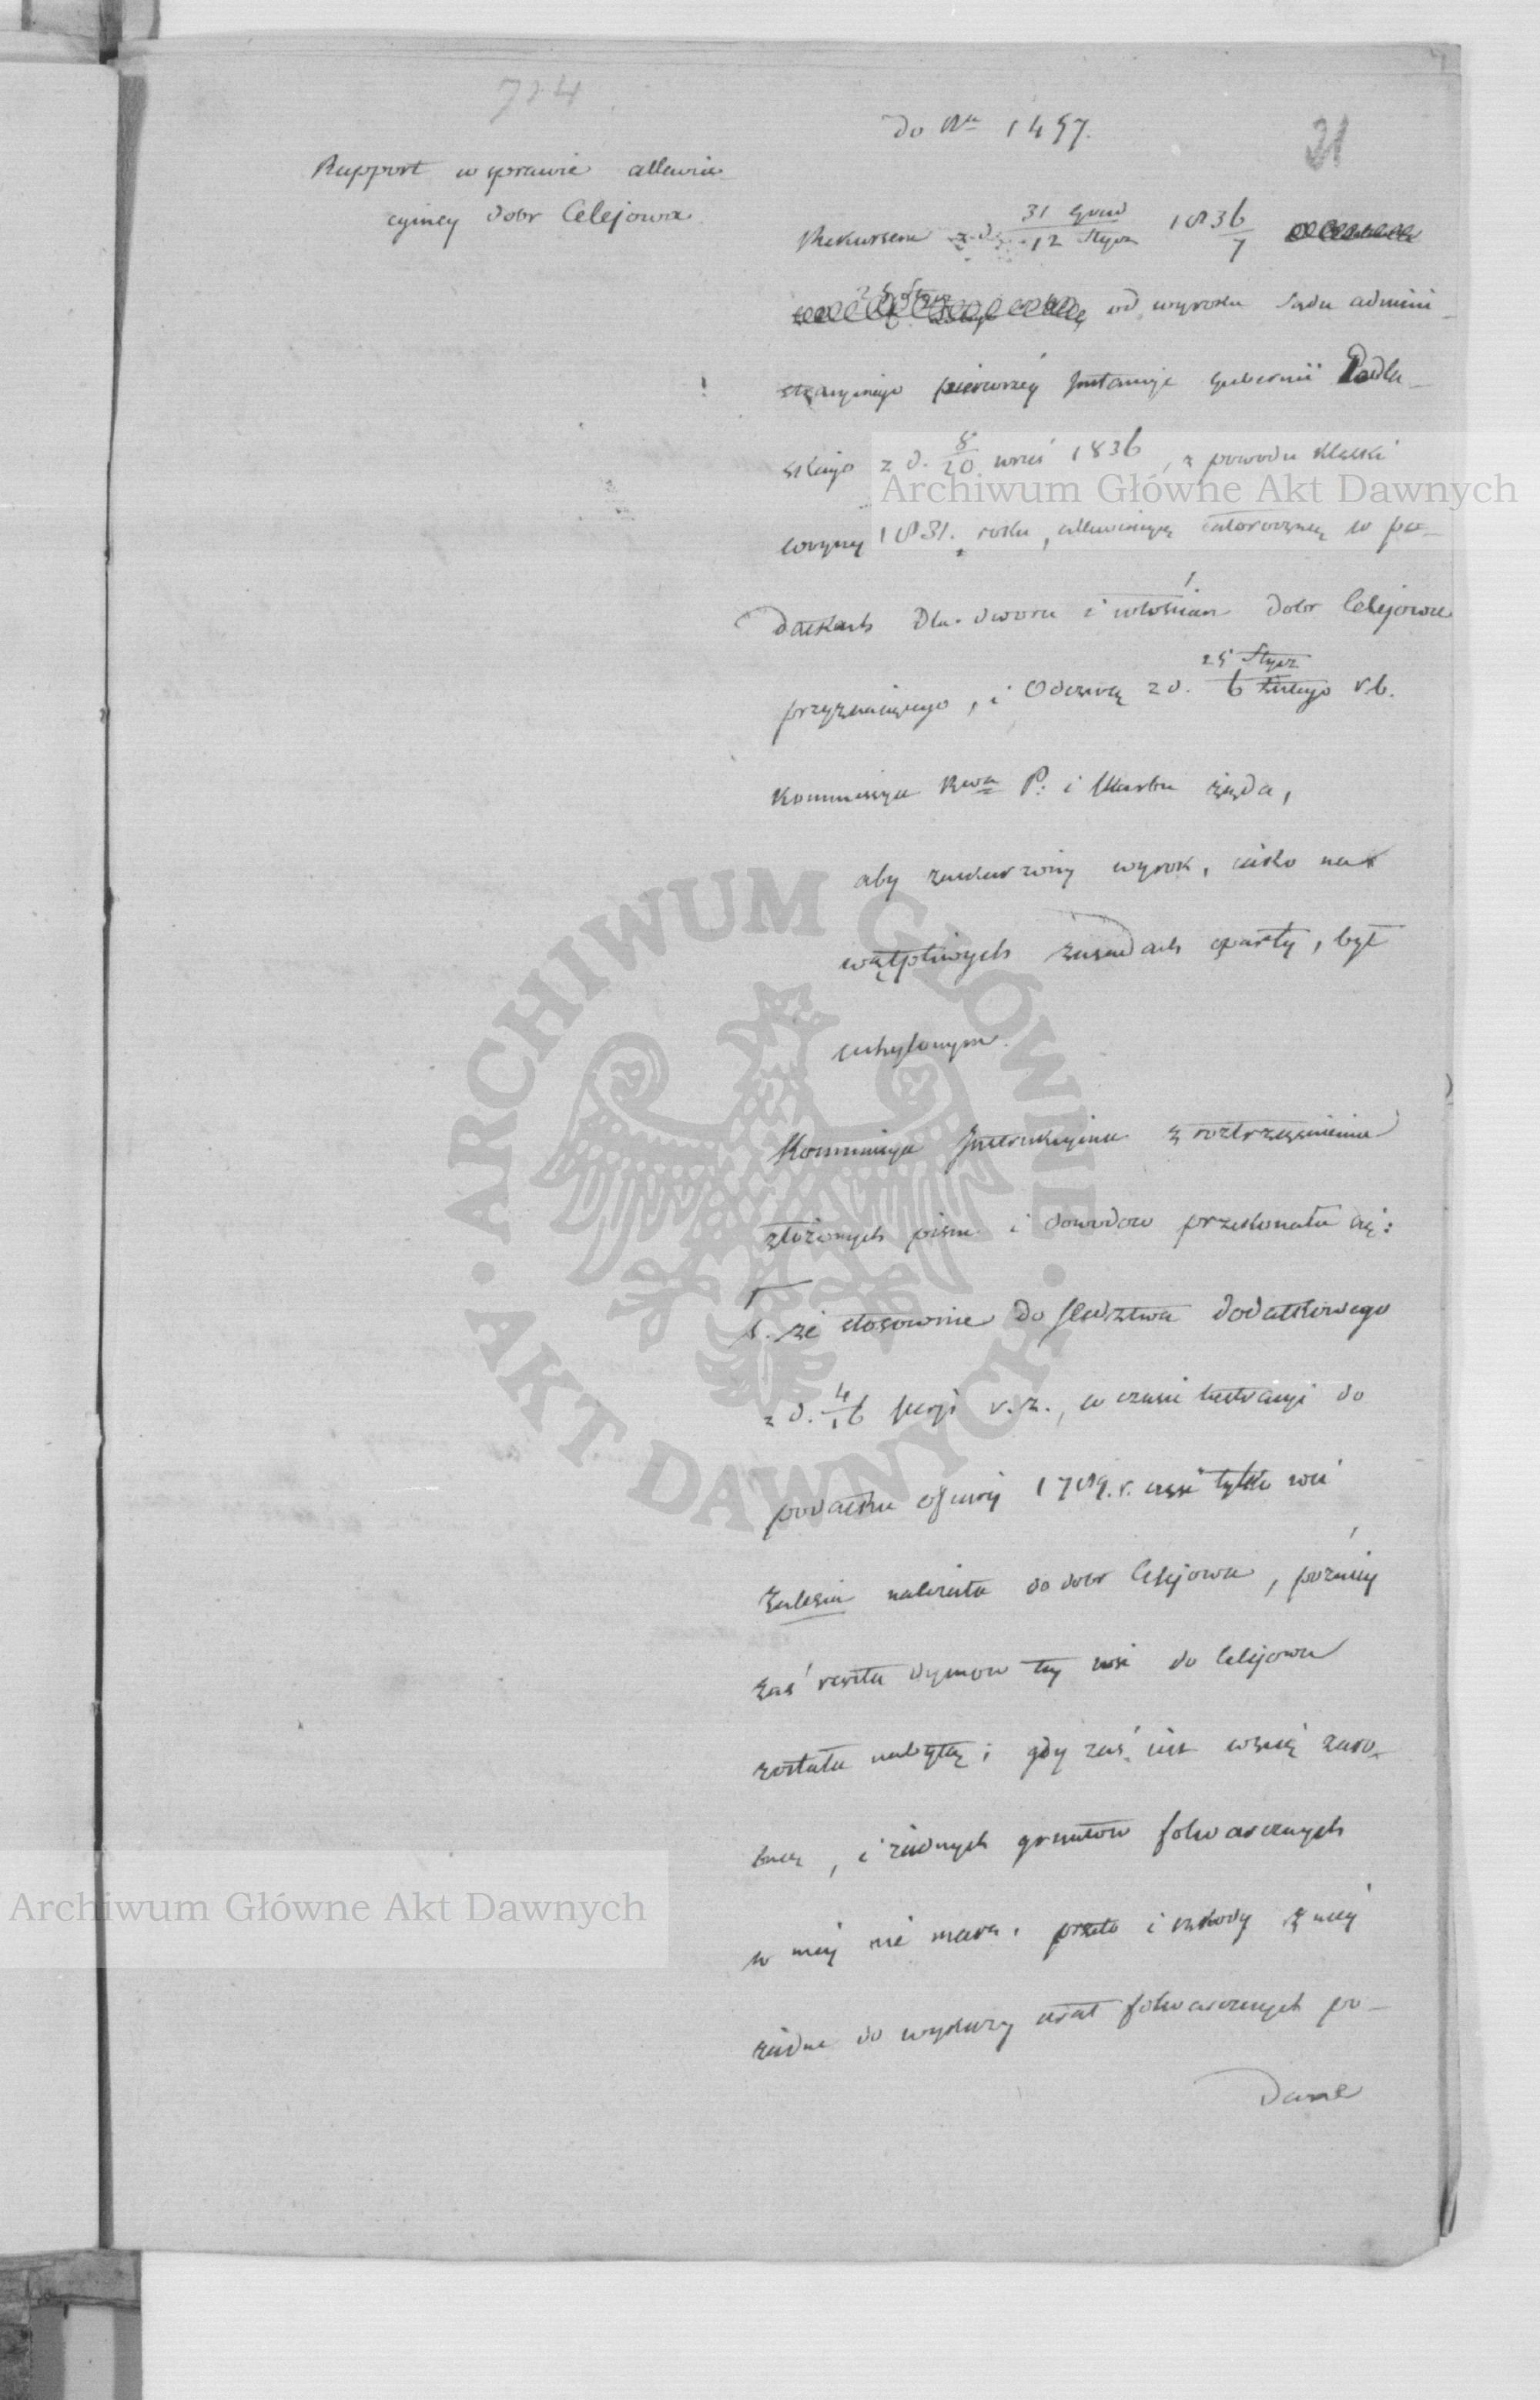 724
do Nu 1457.
21
Rapport w sprawie allewia
cyiney dobr Celejowa
Rekursem z d. 31 Grud 1836
12 Stycz 7
od wyroku Sądu admini
stracyinego pierwszey Instancyi Gubernii Podla
skiego z d. 8/20 wrześ 1836, z powodu klęski
Archiwum Główne Akt Dawnych
woyny 1831. roku, allewiacyą całoroczną w po
datkach dla dworu i włościan dobr Celejowa
25 Stycz
przyznaiącego, i Odezwą z d. 6 Lutego r.b.
Kommissya Rwa P. i Skarbu żąda,
aby zaskarżony wyrok, iako na
wątpliwych zasadach oparty, był
uchylonym.
Kommissya Instrukcyina z roztrząśnienia
złożonych pism i dowodow przekonała się:
1. że stosownie do śledztwa dodatkowego
z d. 4/16 r.z., w czasie lustracyi do
podatku ofiary 1789. r. część tylko wsi
Zalesia należała do dobr Celejowa, poźniey
zaś reszta dymow tey wsi do Celejowa
została nabytą; gdy zaś
i żadnych gruntow folwarcznych
Archiwum Główne Akt Dawnych
w niey nie masz, przeto i szkody z niey
żadne do wykazu strat folwarcznych po
dane
ARCHIWUM GŁÓWNE · AKT DAWNYCH ·